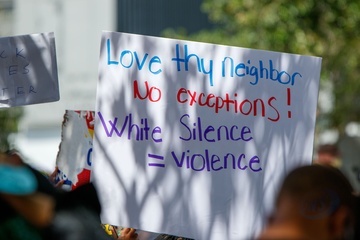 Love thy Neighbor
No exceptions!
White Silence
= violence